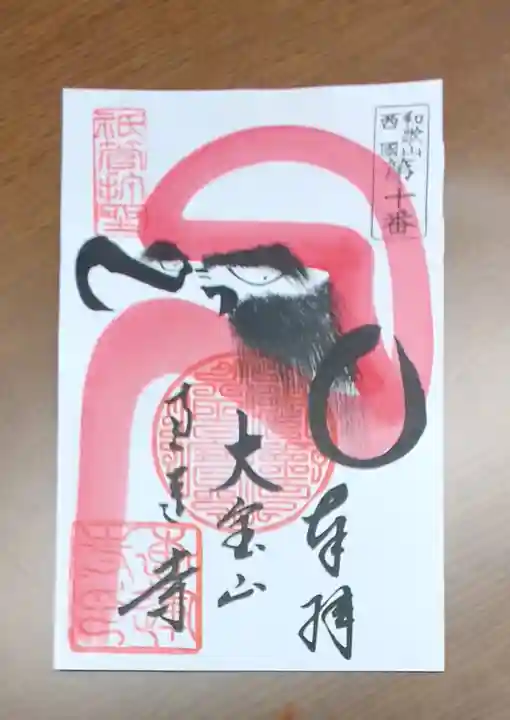 和歌山
西国
第十番
奉拝
大宝山
恵運寺